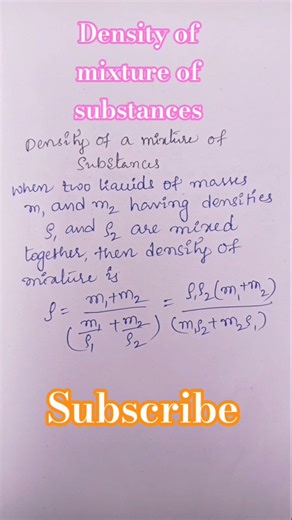 Density of
mixture of
substances
Density of a mixture of
Substances
when two liquids of masses
m₁ and m₂ having densities
ρ₁ and ρ₂ are mixed
together, then density of
mixture is
ρ = (m₁+m₂)/(m₁/ρ₁ + m₂/ρ₂) = ρ₁ρ₂(m₁+m₂)/(m₁ρ₂+m₂ρ₁)
Subscribe